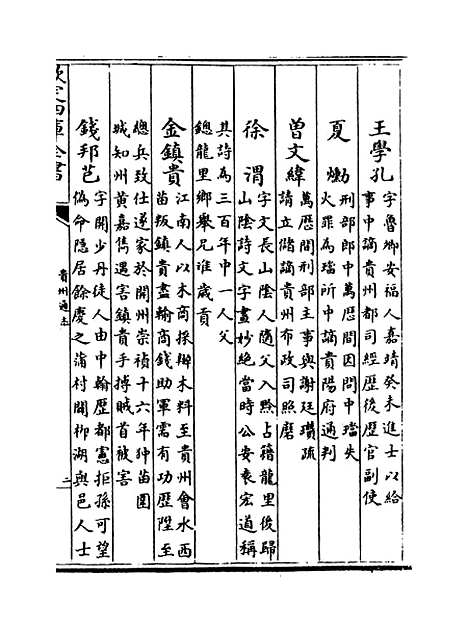 王學孔字魯鄉安福人嘉靖癸未進士以給
事中謫貴州都司經歷後歷官副使
夏勷刑部郎中萬歷間因問中璫失
火罪為璫所中謫貴陽府通判
曽文緯萬歷間刑部主事與謝廷瓚疏
請立儲謫貴州布政司照磨
徐渭字文長山陰人隨父入黔占籍龍里後歸
山陰詩文字畫妙絶當時公安袁宏道稱
其詩為三百年中一人父
鏓龍里鄉舉兄淮歲貢
金鎮貴江南人以木商採辦木料至貴州會水西
苗叛鎮貴盡輸商錢助軍需有功歷陞至
總兵致仕遂家於開州崇禎十六年狆苗圍
城知州黄嘉雋遇害鎮貴手搏賊首被害
錢邦芑字開少丹徒人由中翰歷都憲拒孫可望
偽命隱居餘慶之蒲村闢柳湖與邑人士
欽定四庫全書
貴州通志
二